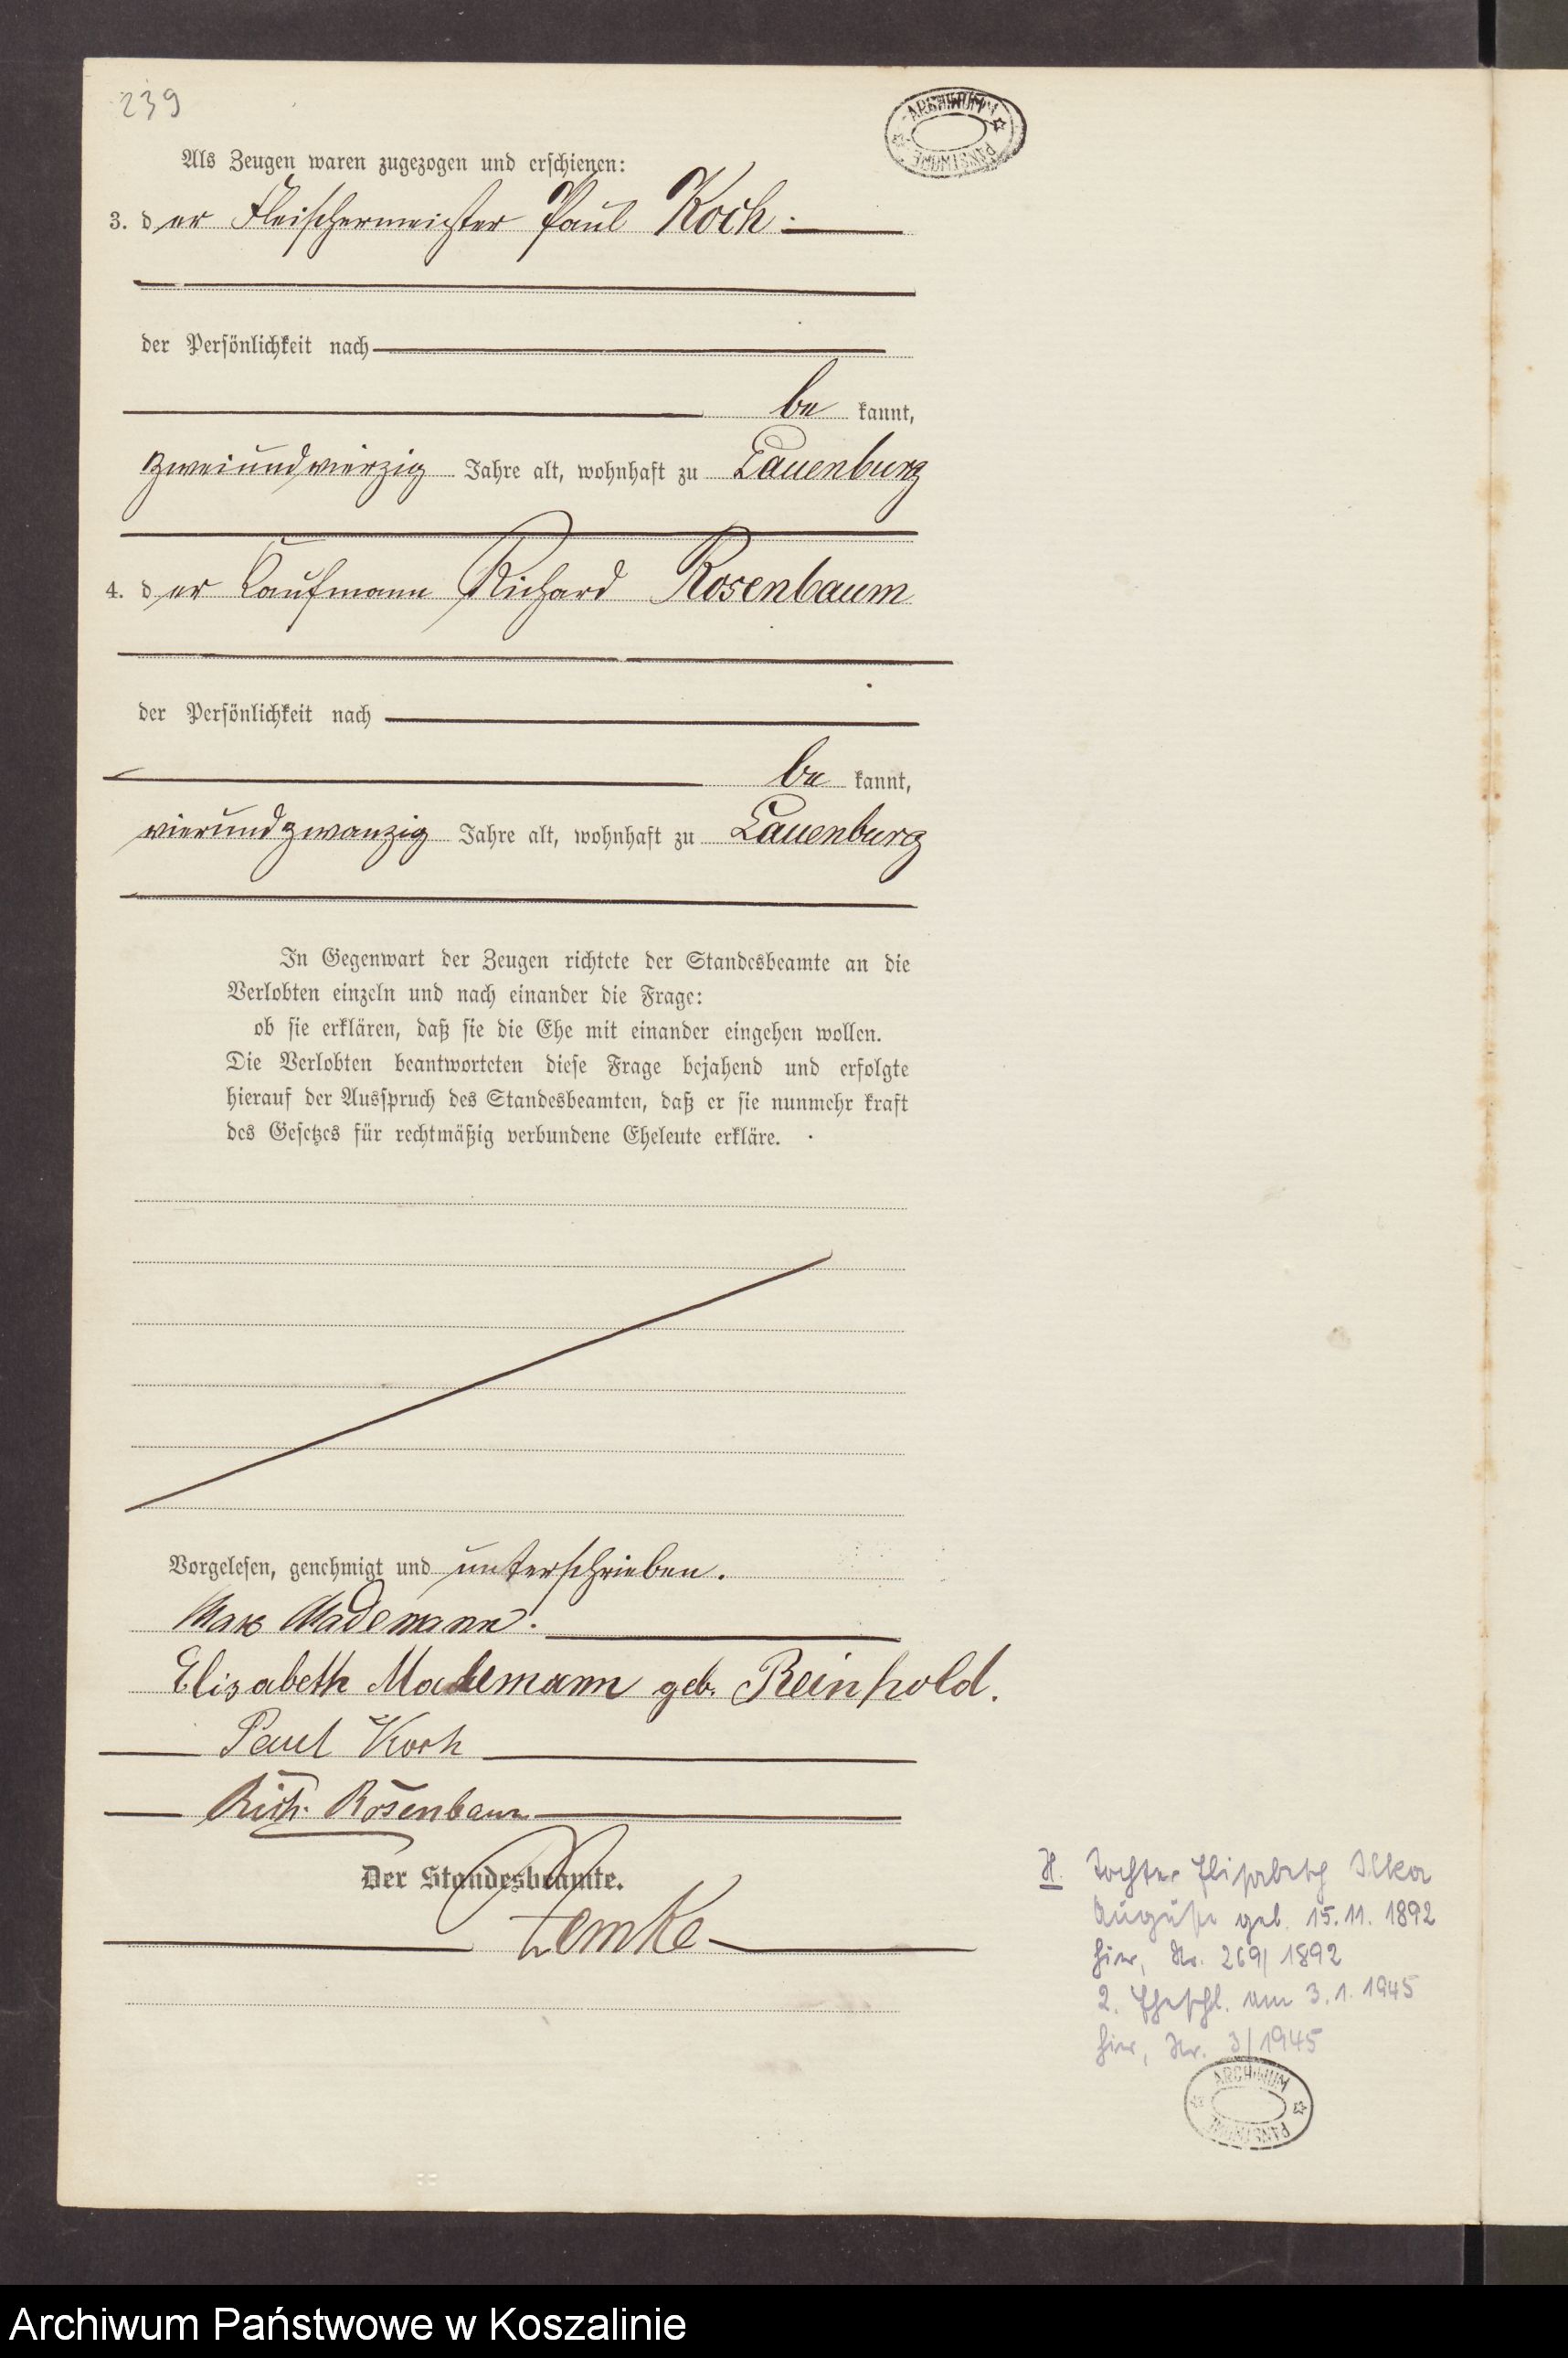 239
ARCHIWUM PAŃSTWOWE
Als Zeugen waren zugezogen und erschienen:
3. der Fleischermeister Paul Koch.
der Persönlichkeit nach
be kannt,
zweiundvierzig Jahre alt, wohnhaft zu Lauenburg
4. der Kaufmann Richard Rosenbaum
der Persönlichkeit nach
be kannt,
vierundzwanzig Jahre alt, wohnhaft zu Lauenburg
In Gegenwart der Zeugen richtete der Standesbeamte an die
Verlobten einzeln und nach einander die Frage:
ob sie erklären, daß sie die Ehe mit einander eingehen wollen.
Die Verlobten beantworteten diese Frage bejahend und erfolgte
hierauf der Ausspruch des Standesbeamten, daß er sie nunmehr kraft
des Gesetzes für rechtmäßig verbundene Eheleute erkläre.
Vorgelesen, genehmigt und unterschrieben.
Max Mademann.
Elisabeth Mademann geb. Reinhold.
Paul Koch
Rich. Rosenbaum
Der Standesbeamte.
Zemke
H. Tochter Elisabeth Ilka
Auguste geb. 15.11.1892
hier, Nr. 269/1892
2. Eheschl. am 3.1.1945
hier, Nr. 3/1945
ARCHIWUM PAŃSTWOWE
Archiwum Państwowe w Koszalinie